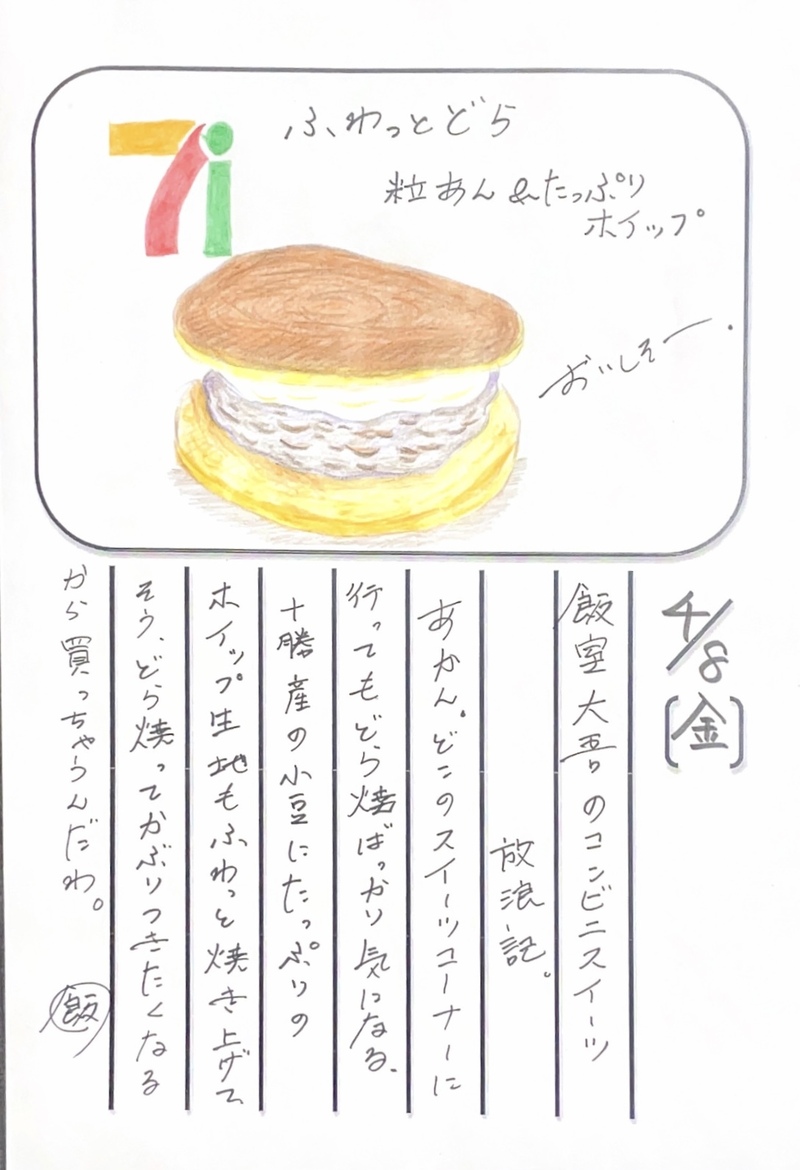 7i
ふわっとどら
粒あん&たっぷり
ホイップ
おいしそー.
4/8
[金]
飯室大吾のコンビニスイーツ
放浪記。
あかん。どこのスイーツコーナーに
行ってもどら焼ばっかり気になる.
十勝産の小豆にたっぷりの
ホイップ生地もふわっと焼き上げて
そう、どら焼ってかぶりつきたくなる
から買っちゃうんだわ。
飯